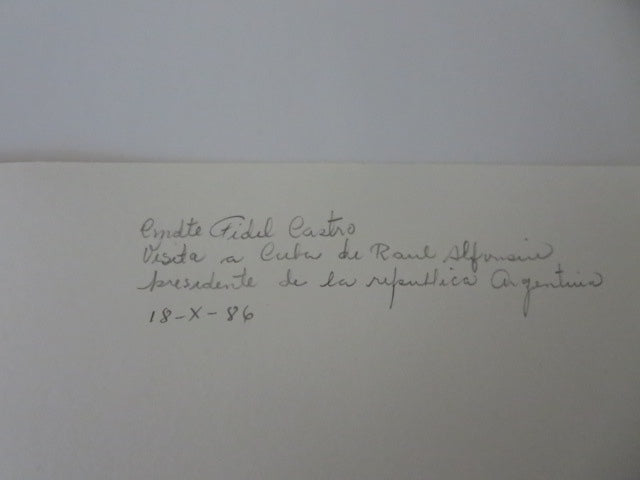 Cmdte Fidel Castro
Visita a Cuba de Raul Alfonsin
presidente de la republica Argentina
18-X-86